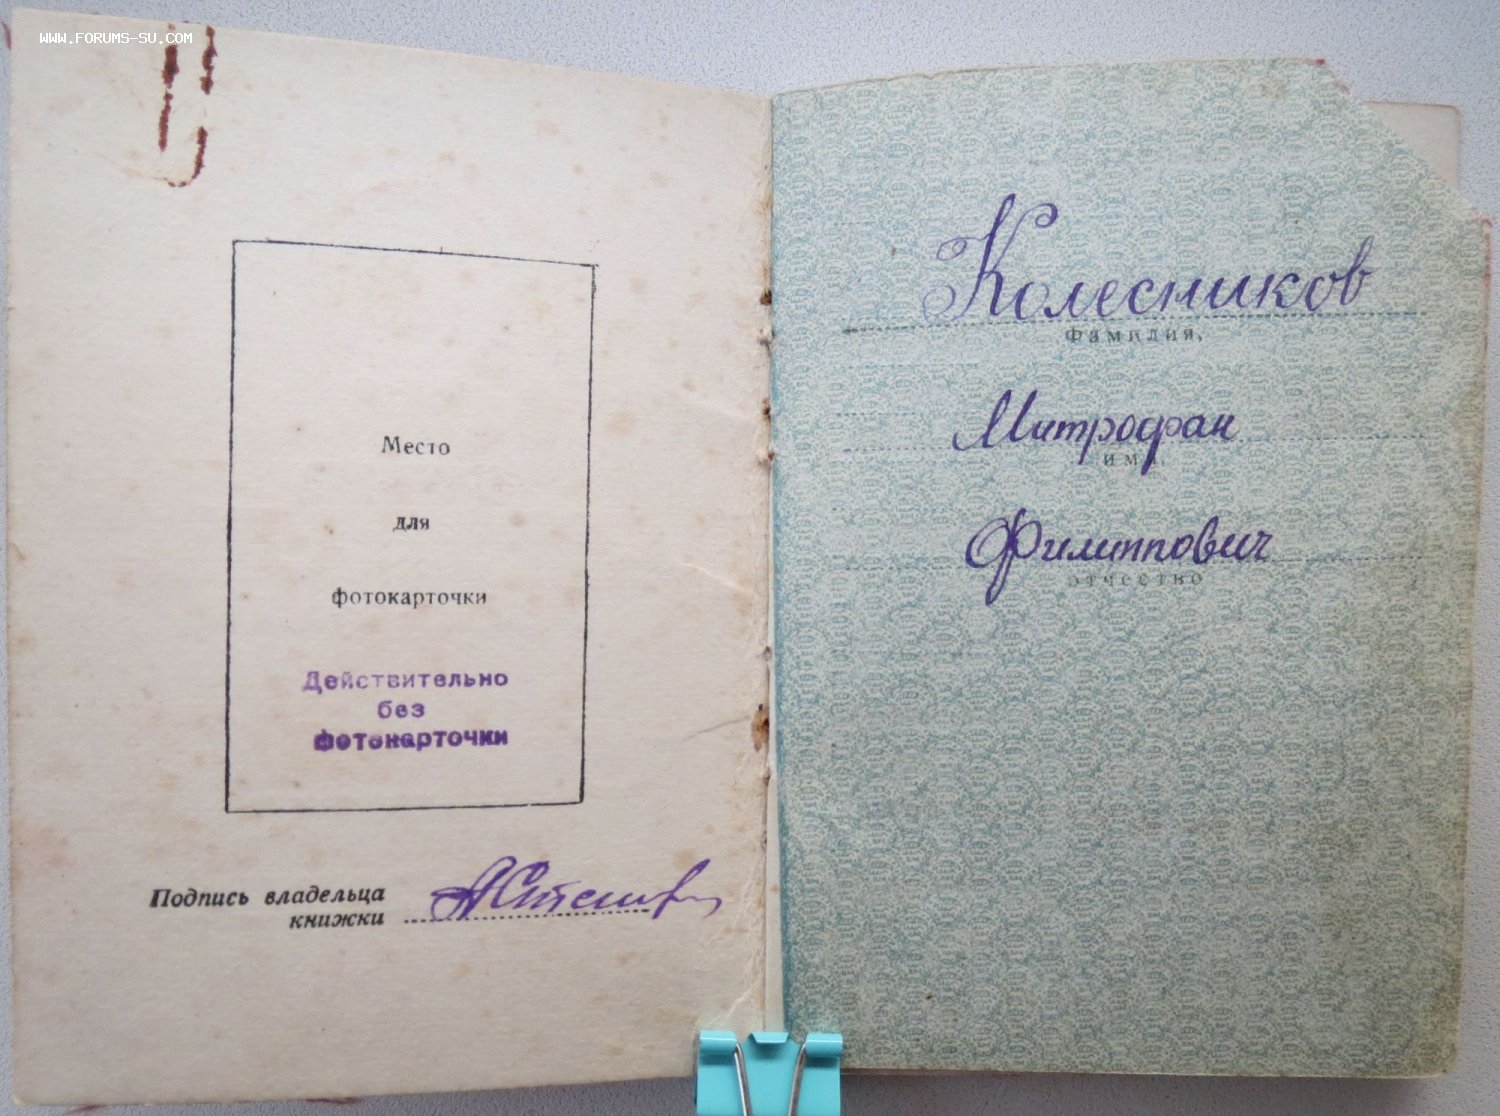 WWW.FORUMS-SU.COM
Место
для
фотокарточки
Действительно
без
фотокарточки
Подпись владельца
книжки
Колесников
Фамилия,
Митрофан
имя,
Филиппович
отчество